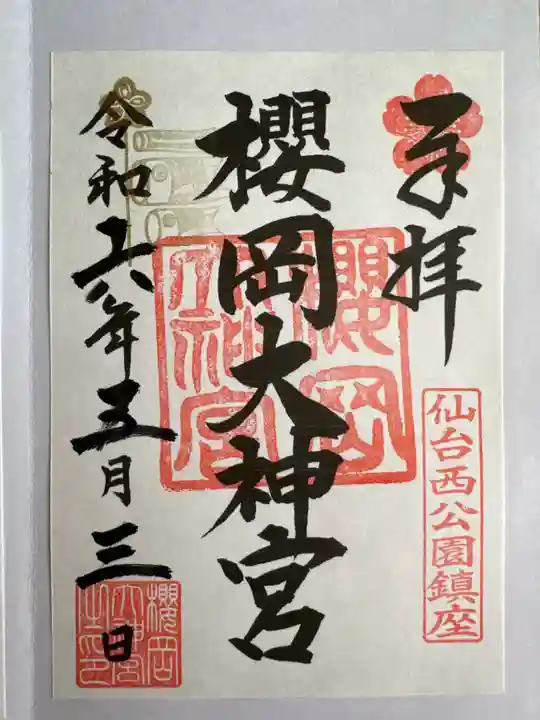 奉拝
仙台西公園鎮座
櫻岡大神宮
櫻岡大神宮
令和六年五月三日
櫻岡大神宮之印